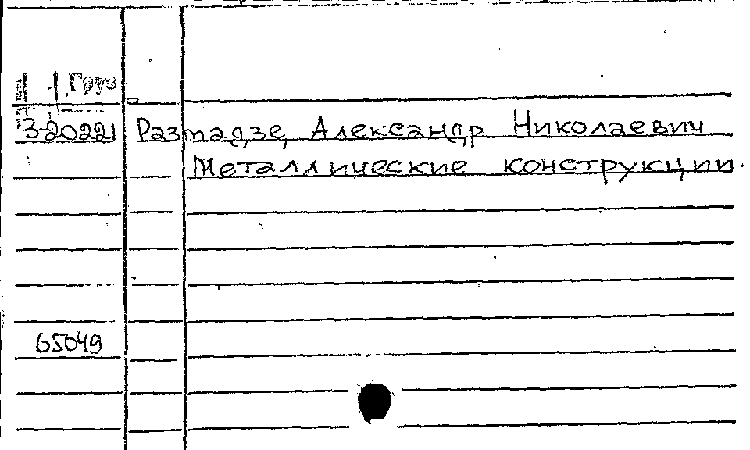 Груз
3-20221 Размадзе, Александр Николаевич
Металлические конструкции.
65049